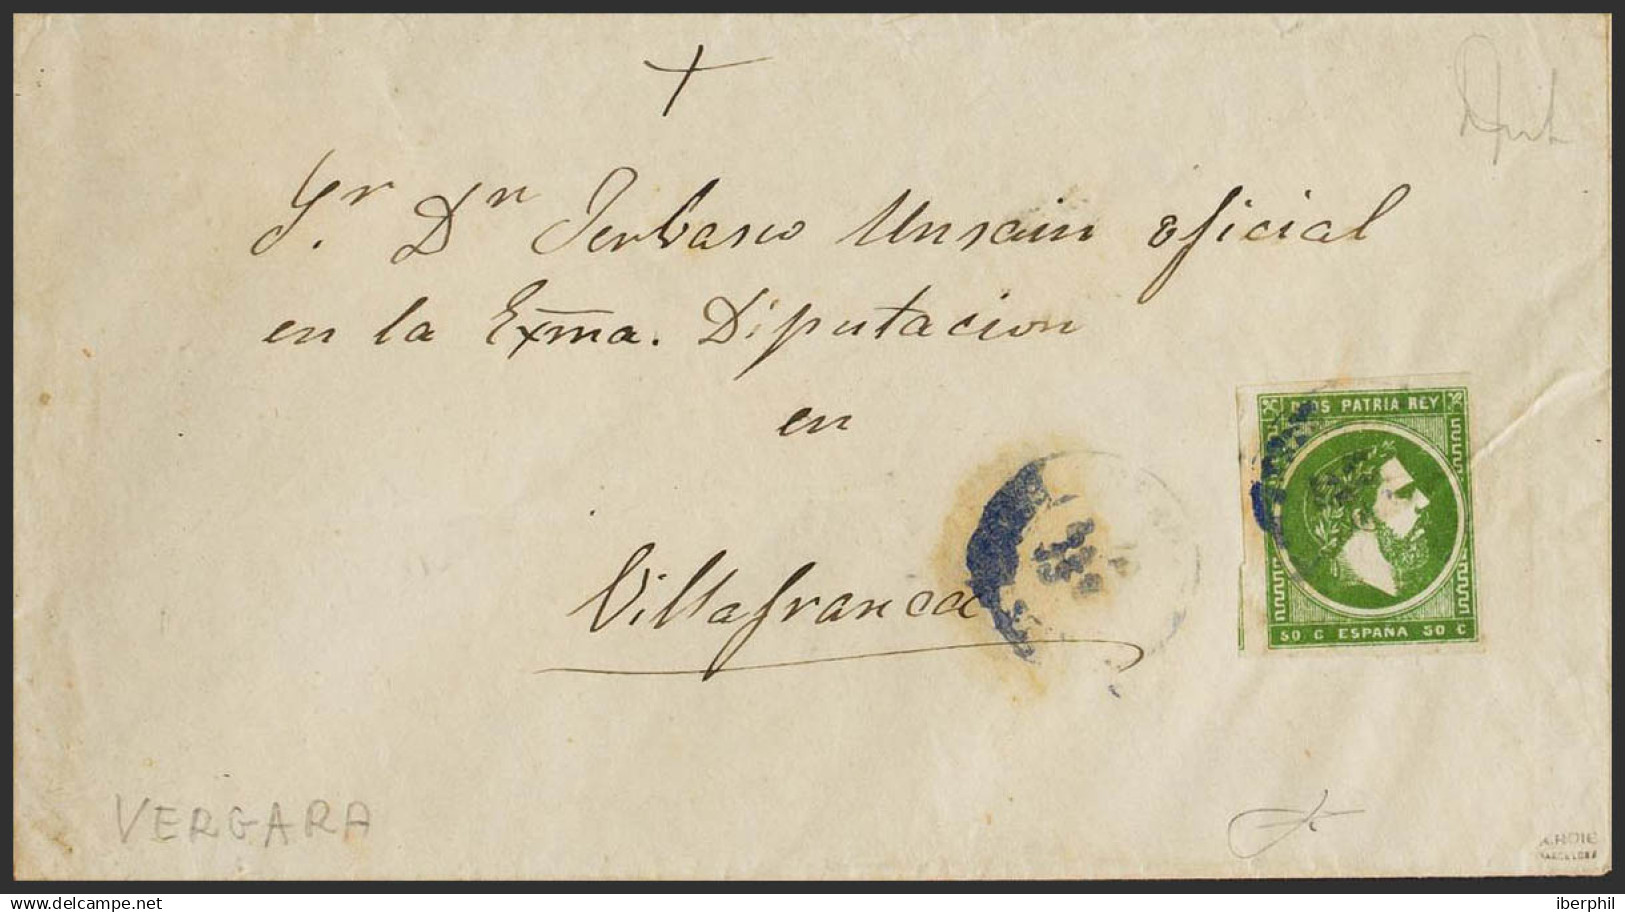 Sr. Dn Jerbasio Unsain oficial
en la Exma. Diputacion
en
Villafranca
DIOS PATRIA REY
50 C ESPAÑA 50 C
VERGARA
iberphil